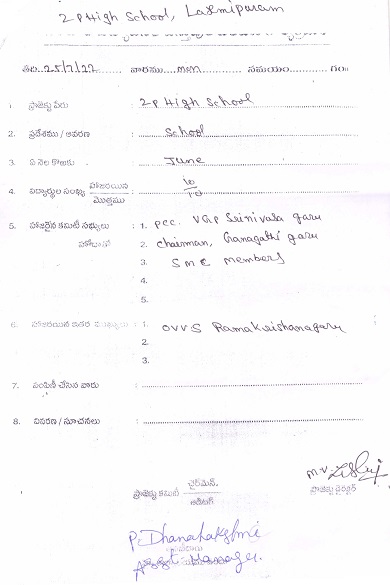 ZP High School, Laxmipuram
తేది:..25/7/22.... వారము....mm.... సమయం.... గం॥
1. ప్రాజెక్టు పేరు : ZP High School
2. ప్రదేశము / ఆవరణ : School
3. ఏ నెల కొఱకు : June
4. విద్యార్థుల సంఖ్య హాజరయిన / మొత్తము : 10
5. హాజరైన కమిటీ సభ్యులు : 1. pcc. VGP Srinivala garu
2. chairman, Ganagathi garu
3. SMC members
4.
5.
6. హాజరయిన ఇతర : 1. OVVS Ramakrishanagaru
2.
3.
7. పంపిణీ చేసిన వారు :
8. వివరణ / సూచనలు :
M.V.
ప్రాజెక్టు కమిటీ ఛైర్మెన్. / ఆడిటర్
ప్రాజెక్టు డైరక్టర్
P. Dhanalakshmi
Asst Manager.